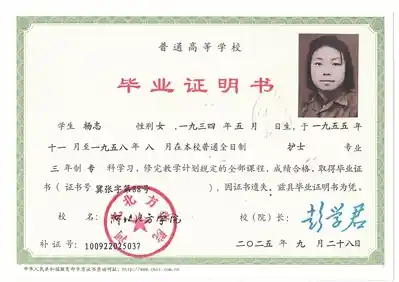 普通高等学校
毕业证明书
学生 杨志 性别 女 ,一九三四 年 五 月 日生，于 一九五五 年
十一 月至 一九五八 年 八 月在本校普通全日制 护士 专业
三 年制 专 科学习，修完教学计划规定的全部课程，成绩合格，取得毕业证
书（证书号 冀张字第88号 ），因证书遗失，兹具毕业证明书为凭。
校 名： 河北北方学院 校（院）长： 彭学君
补证号：100922025037 二〇二五 年 九 月 二十八 日
中华人民共和国教育部学历证书查询网址：http://www.chsi.com.cn